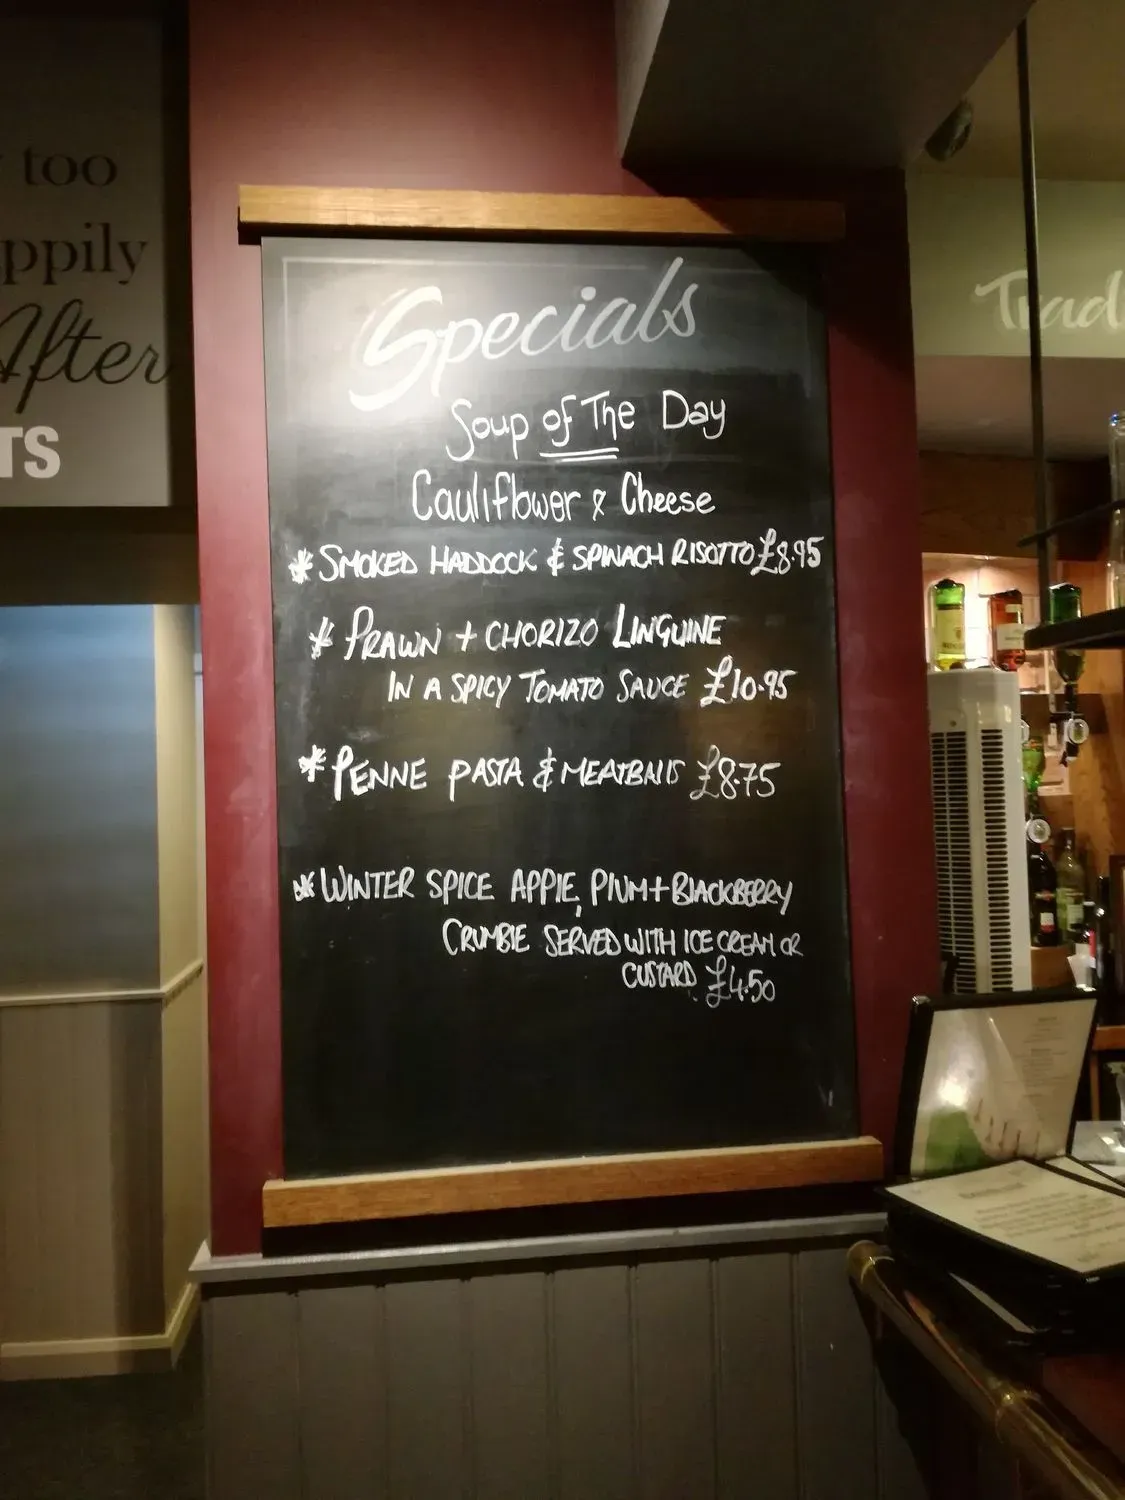 too
ppily
After
TS
Specials
Soup of The Day
Cauliflower & Cheese
* SMOKED HADDOCK & SPINACH RISOTTO £8.95
* PRAWN + CHORIZO LINGUINE
IN A SPICY TOMATO SAUCE £10.95
* PENNE PASTA & MEATBALLS £8.75
* WINTER SPICE APPLE, PLUM + BLACKBERRY
CRUMBLE SERVED WITH ICE CREAM OR
CUSTARD £4.50
Trad